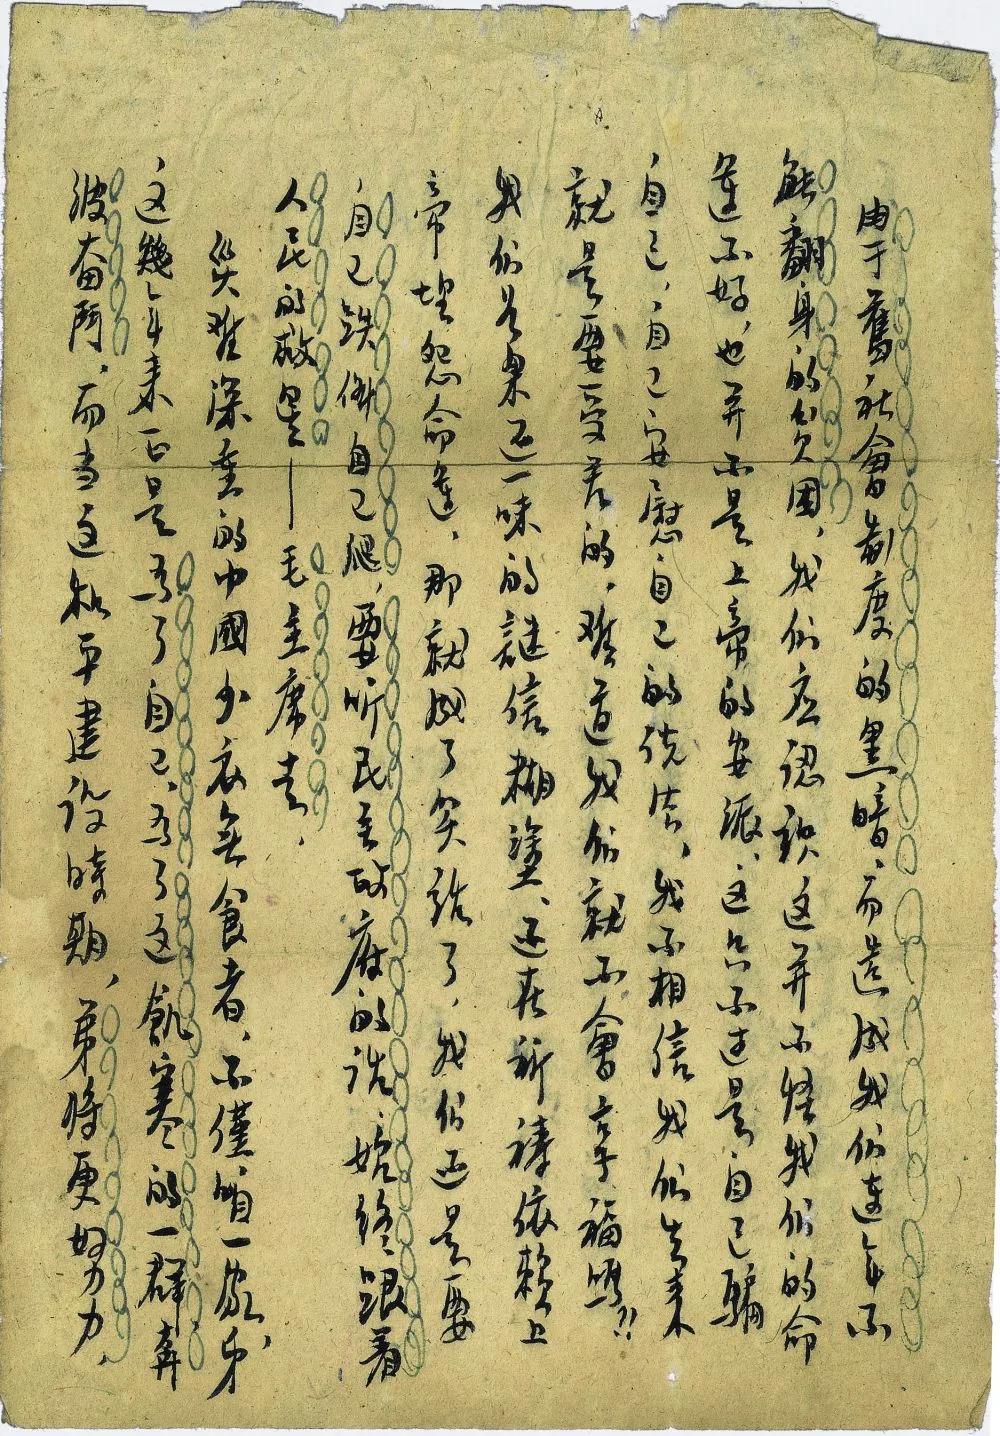 由于舊社會制度的黑暗，而造成我们連年不
能翻身的貧困，我们应认識这并不怪我们的命
運不好，也并不是上帝的安派，这只不过是自己騙
自己，自己安慰自己的说法，我不相信我们生来
就是要受苦的，难道我们就不會享福嗎!!
我们若果还一味的謎信糊塗、还在祈祷依赖上
帝埋怨命運，那就成了笑話了，我们还是要
自己跌倒自己爬，要听民主政府的話，始终跟着
人民的救星——毛主席走，
災难深重的中國少衣無食者，不僅咱一家，弟
这幾年来正是为了自己、为了这飢寒的一群奔
波奋鬥，而当这和平建设時期，弟将更努力，